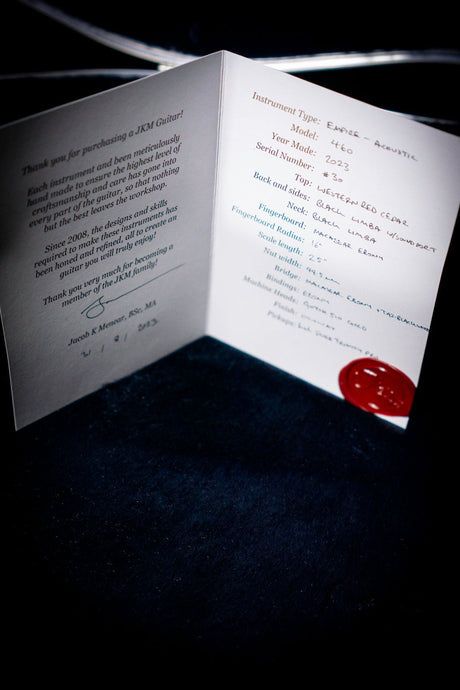 Thank you for purchasing a JKM Guitar!
Each instrument and been meticulously
hand made to ensure the highest level of
craftsmanship and care has gone into
every part of the guitar, so that nothing
but the best leaves the workshop.
Since 2008, the designs and skills
required to make these instruments has
been honed and refined, all to create an
guitar you will truly enjoy!
Thank you very much for becoming a
member of the JKM family!
Jacob K Menear, BSc, MA
Instrument Type: EMPIRE - ACOUSTIC
Model: 460
Year Made: 2023
Serial Number: #30
Top: WESTERN RED CEDAR
Back and sides: BLACK LIMBA W/SOUNDPORT
Neck: BLACK LIMBA
Fingerboard: MACASSAR EBONY
Fingerboard Radius: 16"
Scale length: 25"
Nut width: 44.5mm
Bridge: MACASSAR EBONY
Bindings: EBONY
Machine Heads: GOTOH 510 GOLD
Finish:
Pickups: